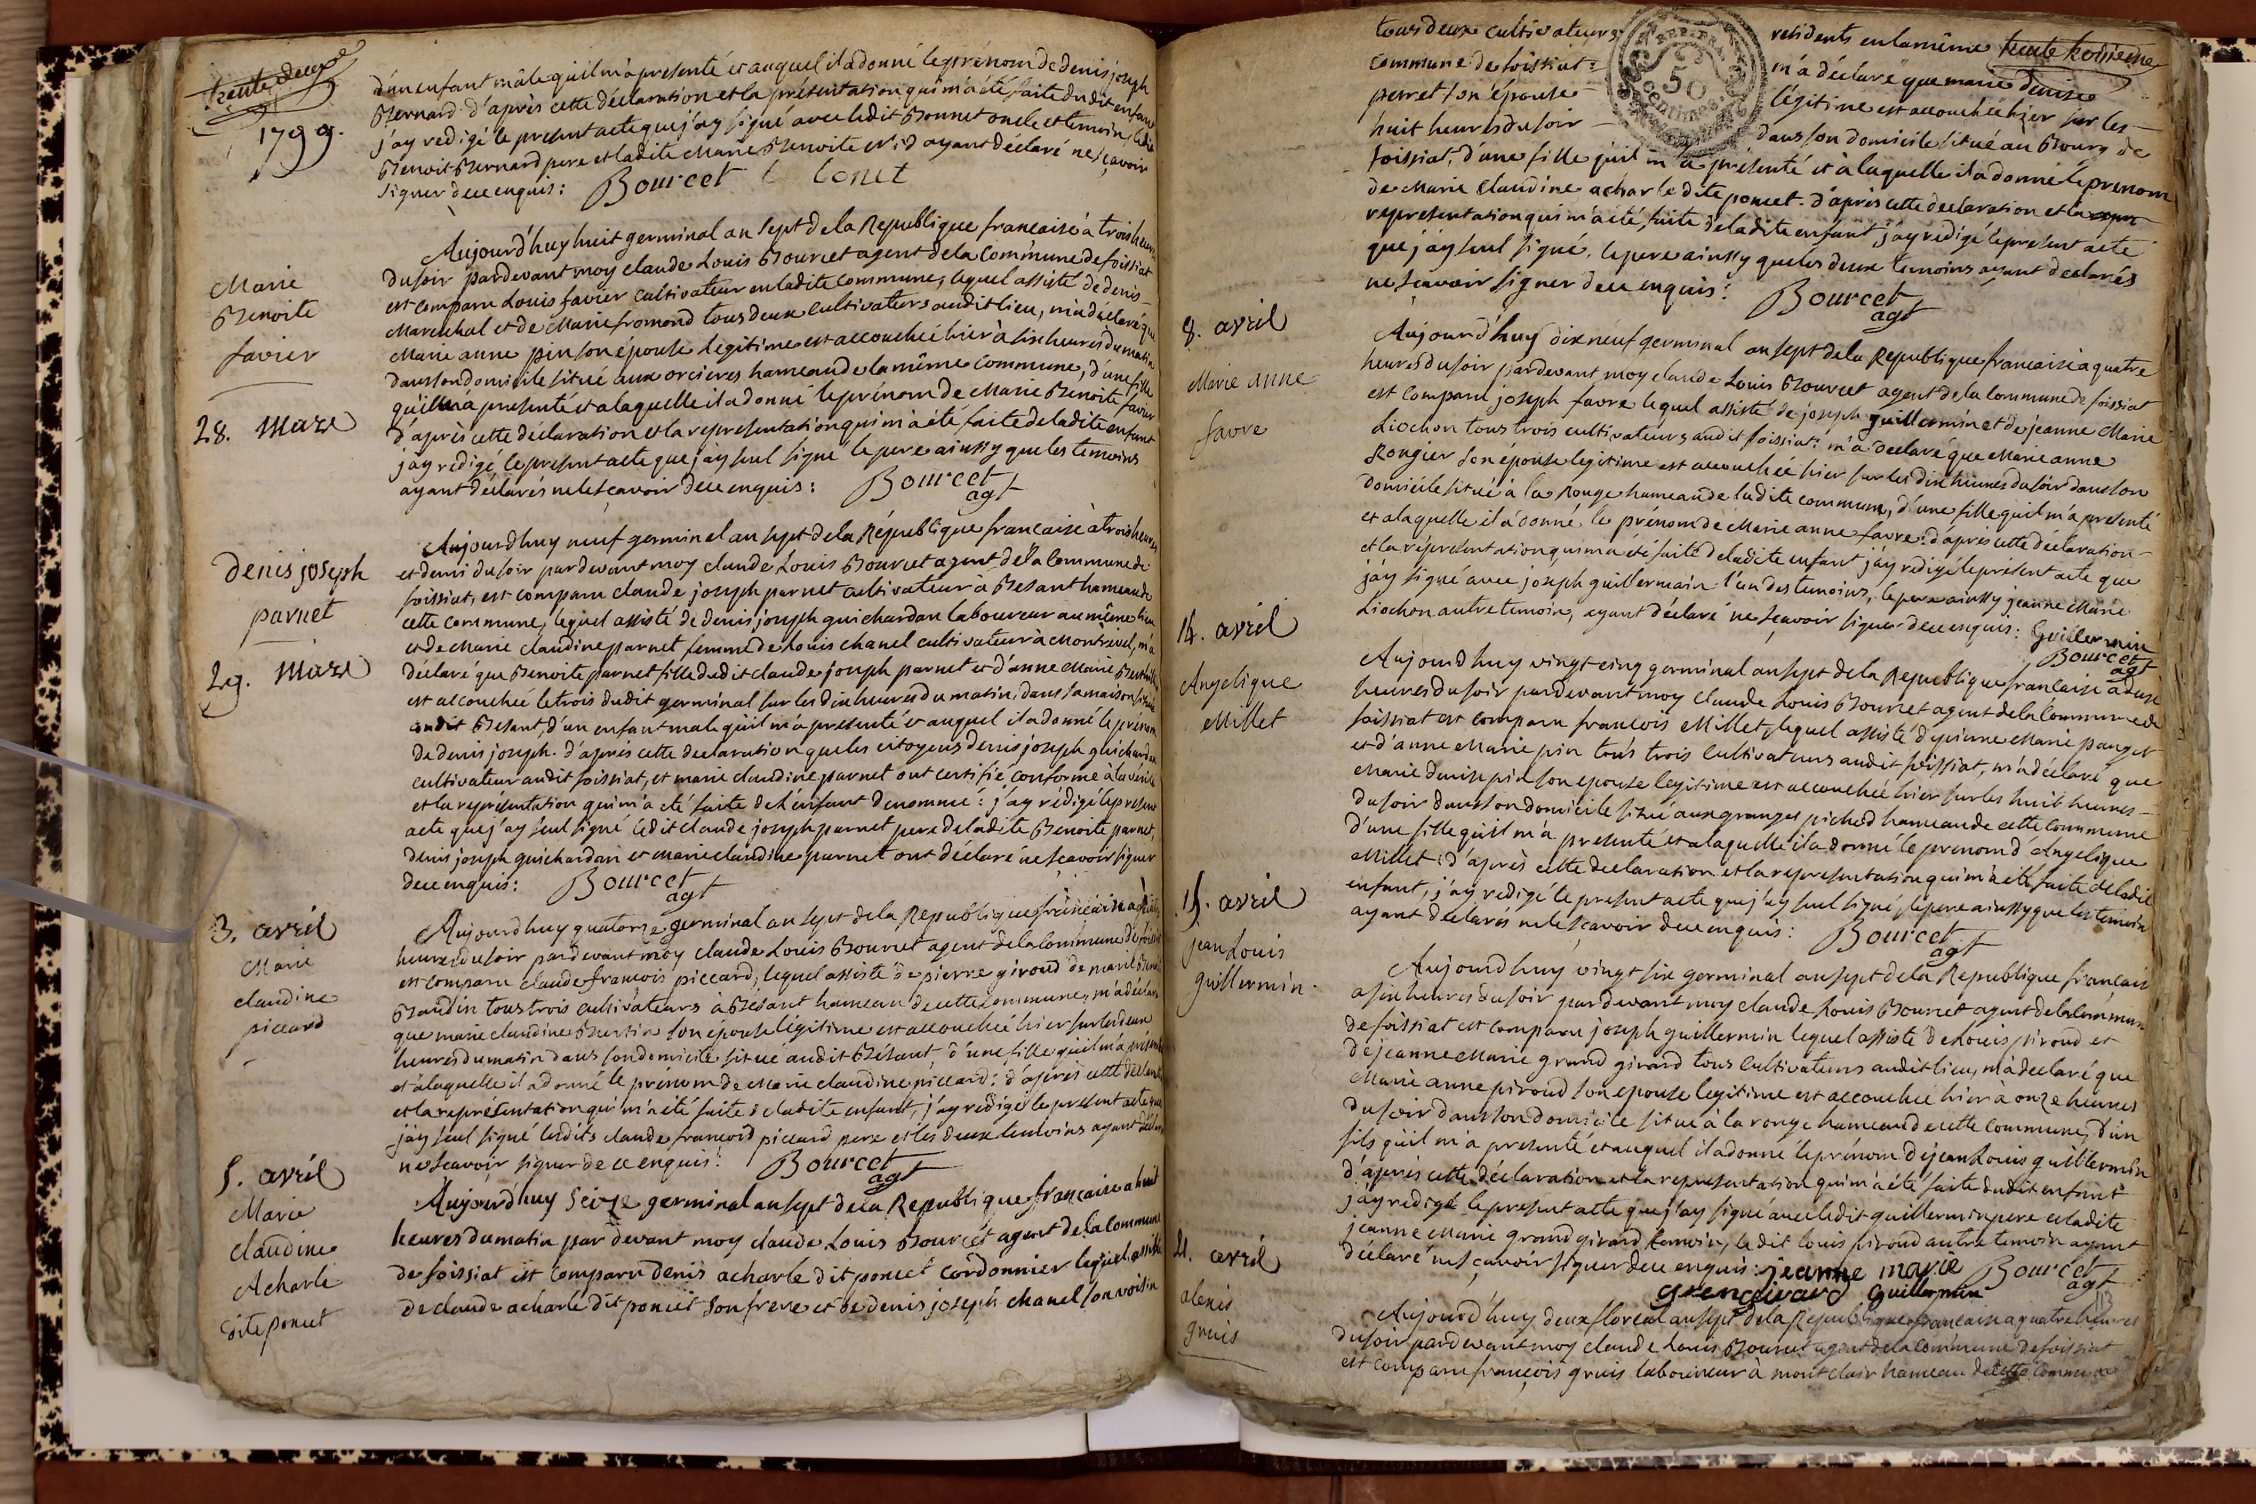 trente deux
1799.
d'un enfant mâle qu'il m'a presenté et auquel il a donné le prénom de denis joseph
Bernard. d'après cette déclaration et la présentation qui m'a été faite dudit enfant
j'ay redigé le present acte que j'ay signé avec ledit Bonnet oncle et temoin, ledit
Benoit Bernard pere et ladite Marie Benoite ayant déclaré ne sçavoir
signer de ce enquis: Bourcet
Marie
Benoite
favier
28. Mars
Aujourd'huy huit germinal an sept de la Republique francaise à trois heures
du soir pardevant moy claude Louis Bourcet agent de la Commune de foissiat
est comparu Louis favier cultivateur en ladite commune, lequel assisté de denis
Marechal et de Marie fromond tous deux cultivateurs audit lieu, m'a déclaré que
Marie anne pin son épouse legitime est accouchée hier à six heures du matin
dans son domicile situé aux orcieres hameau de la même commune, d'une fille
qu'il m'a presenté et a laquelle il a donné le prénom de Marie Benoite favier
d'après cette déclaration et la representation qui m'a été faite de ladite enfant
j'ay redigé le present acte que j'ay seul signé le pere ainssy que les temoins
ayant déclarés ne le sçavoir de ce enquis: Bourcet
agt
denis joseph
parnet
29. Mars
Aujourdhuy neuf germinal an sept de la République francaise à trois heures
et demi du soir pardevant moy claude Louis Bourcet agent de la Commune de
foissiat, est comparu claude joseph parnet cultivateur à Besant hameau de
cette commune, lequel assisté de denis joseph guichardan laboureur au même lieu
et de Marie claudine parnet femme de Louis chanel cultivateur à Montrevel, m'a
déclaré que Benoite parnet fille dudit claude joseph parnet et d'anne Marie
est accouchée le trois dudit germinal sur les dix heures du matin, dans sa maison située
audit Besant, d'un enfant male qu'il m'a presenté et auquel il a donné le prénom
de denis joseph. d'après cette declaration que les citoyens denis joseph guichardan
cultivateur audit foissiat, et marie claudine parnet ont certifié conforme à la vérité
et la représentation qui m'a été faite de l'enfant denommé: j'ay rédigé le present
acte que j'ay seul signé ledit claude joseph parnet pere de ladite Benoite parnet,
denis joseph guichardan et marie claudine parnet ont déclaré ne sçavoir signer
de ce enquis: Bourcet
agt
3. avril
Marie
claudine
piccard
Aujourdhuy quatorze germinal an sept de la Republique francaise a
heures du soir pardevant moy claude Louis Bourcet agent de la Commune de foissiat
est comparu claude francois piccard, lequel assisté de pierre giroud de marie
Baudin tous trois cultivateurs à Besant hameau de cette commune, m'a déclaré
que marie claudine Burtin son épouse légitime est accouchée hier sur les deux
heures du matin dans son domicile situé audit Bésant, d'une fille qu'il m'a présenté
et à laquelle il a donné le prénom de Marie claudine piccard: d'après cette déclaration
et la représentation qui m'a été faite de ladite enfant, j'ay rédigé le present acte que
j'ay seul signé lesdits claude francois piccard pere et les deux temoins ayant déclarés
ne sçavoir signer de ce enquis: Bourcet
agt
5. avril
Marie
claudine
Acharle
dite poncet
Aujourd'huy Seize germinal an sept de la Republique française a huit
heures du matin par devant moy claude Louis Bourcet agent de la commune
de foissiat est comparu denis acharle dit poncet cordonnier lequel assisté
de claude acharle dit poncet son frere et de denis joseph chanel son voisin
trente troisieme
REP. FRA.
50
centimes
tous deux cultivateurs residents en la même
commune de foissiat m'a déclaré que marie denise
perret son épouse légitime est accouchée hier sur les
huit heures du soir dans son domicile situé au Bourg de
foissiat, d'une fille qu'il m'a présenté et à laquelle il a donné le prenom
de Marie claudine acharle dite poncet. d'après cette declaration et la
representation qui m'a été faite de ladite enfant j'ay redigé le present acte
que j'ay seul signé, le pere ainssy que les deux temoins ayant declarés
ne sçavoir signer de ce enquis: Bourcet
agt
8. avril
Marie anne
favre
Aujourd'huy dix neuf germinal an sept de la Republique francaise a quatre
heures du soir pardevant moy claude Louis Bourcet agent de la commune de foissiat
est comparu joseph favre lequel assisté de joseph guillermin et de jeanne Marie
Liochon tous trois cultivateurs audit foissiat: m'a declaré que Marie anne
Rougier son épouse legitime est accouchée hier sur les dix heures du soir dans son
domicile situé à la Rouge hameau de ladite commune, d'une fille quil m'a presenté
et a laquelle il a donné le prénom de Marie anne favre: d'après cette declaration
et la réprésentation qui m'a été faite de ladite enfant j'ay redigé le présent acte que
j'ay signé avec joseph guillermain l'un des temoins, le pere ainssy jeanne Marie
Liochon autre temoin, ayant déclaré ne sçavoir signer de ce enquis: Guillermin
Bourcet
agt
14. avril
Angelique
Millet
Aujourdhuy vingt cinq germinal an sept de la Republique francaise a deux
heures du soir pardevant moy claude Louis Bourcet agent de la Commune de
foissiat est comparu francois Millet, lequel assisté de pierre Marie panget
et d'anne Marie pin tous trois cultivateurs audit foissiat, m'a déclaré que
Marie denise pin son epouse legitime est accouchée hier sur les huit heures
du soir dans son domicile situé aux granges pichod hameau de cette Commune
d'une fille qu'il m'a presenté et a laquelle il a donné le prenom d'Angelique
Millet: d'après cette declaration et la representation qui m'a été faite de ladite
enfant, j'ay redigé le present acte que j'ay seul signé, le pere ainssy que les temoins
ayant declarés ne le sçavoir de ce enquis: Bourcet
agt
15. avril
jean Louis
guillermin.
Aujourdhuy vingt six germinal an sept de la Republique francaise
a six heures du soir pardevant moy claude Louis Bourcet agent de la Commune
de foissiat est comparu joseph guillermin lequel assisté de Louis piroud et
de jeanne Marie grand girard tous cultivateurs audit lieu, m'a declaré que
Marie anne piroud son epouse legitime est accouchée hier à onze heures
du soir dans son domicile situé à la rouge hameau de cette commune, d'un
fils qu'il m'a presenté et auquel il a donné le prénom de jean Louis guillermin
d'après cette déclaration et la representation qui m'a été faite dudit enfant
j'ay redigé le present acte que j'ay signé avec ledit guillermin pere et ladite
jeanne Marie grand girard temoin, le dit louis piroud autre temoin ayant
déclaré ne sçavoir signer de ce enquis: jeanne marie Bourcet
agt
grengirard guillermin
21. avril
alexis
gruis
Aujourd'huy deux floreal an sept de la Republique francaise a quatre heures
du soir pardevant moy claude Louis Bourcet agent de la Commune de foissiat
est comparu françois gruis laboureur à montclair hameau de cette commune